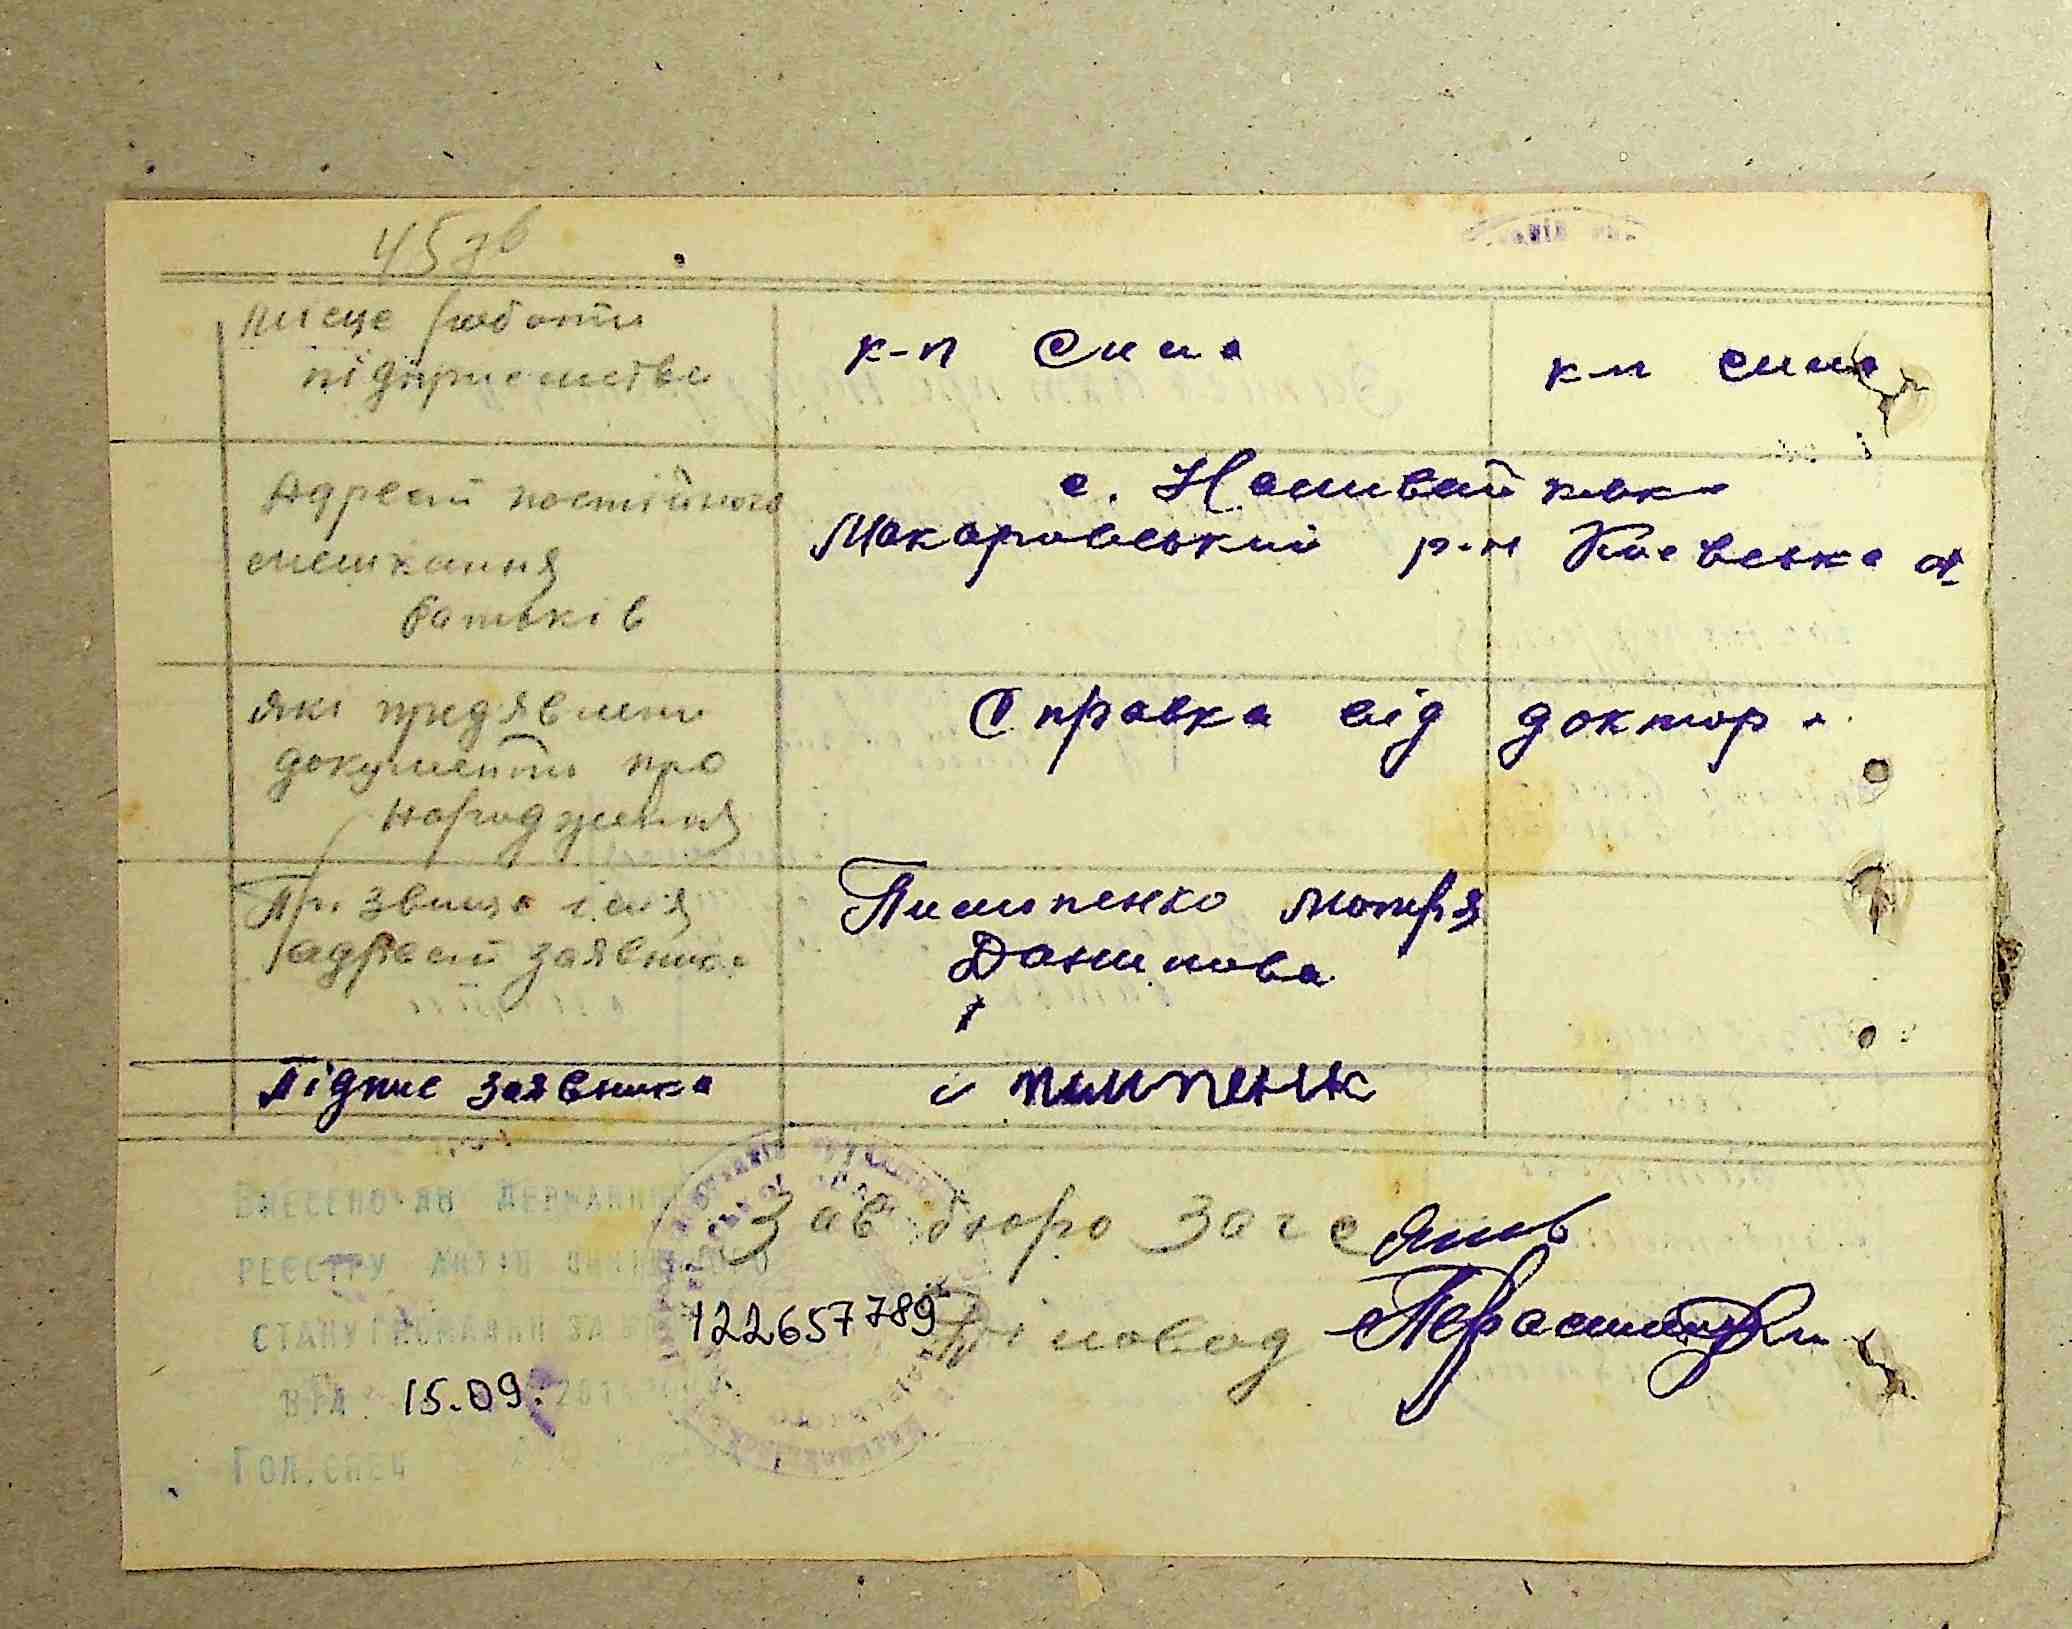 45 зв
місце роботи
підприємства
к-п Сила
к-п сила
Адреса постійного
мешкання
батьків
с. Наливайківка
Макаровський р-н Киевська об
які предявлені
документи про
народження
Справка від доктора
Призвище імя
адреса заявника
Пилипенко Мотря
Данилова
Підпис заявника
пилипенк
ВНЕСЕНО ДО ДЕРЖАВНОГО
РЕЄСТРУ АКТІВ ЦИВІЛЬНОГО
СТАНУ ГРОМАДЯН ЗА №
122657789
ВІД 15.09. 201
ГОЛ.СПЕЦ
Зав бюро загс
Діловод